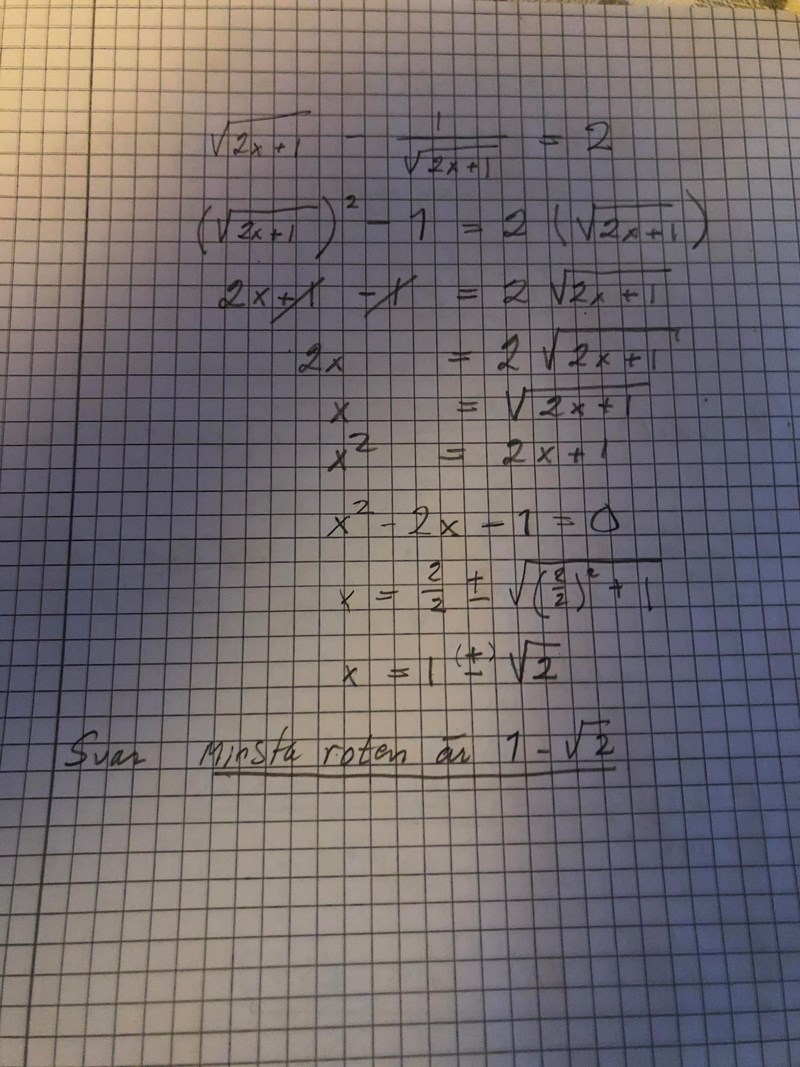 √(2x+1) - 1/√(2x+1) = 2
(√(2x+1))² - 1 = 2 (√(2x+1))
2x+1 - 1 = 2 √(2x+1)
2x = 2 √(2x+1)
x = √(2x+1)
x² = 2x+1
x² - 2x - 1 = 0
x = 2/2 ± √((2/2)² + 1)
x = 1 (±) √2
Svar Minsta roten är 1 - √2